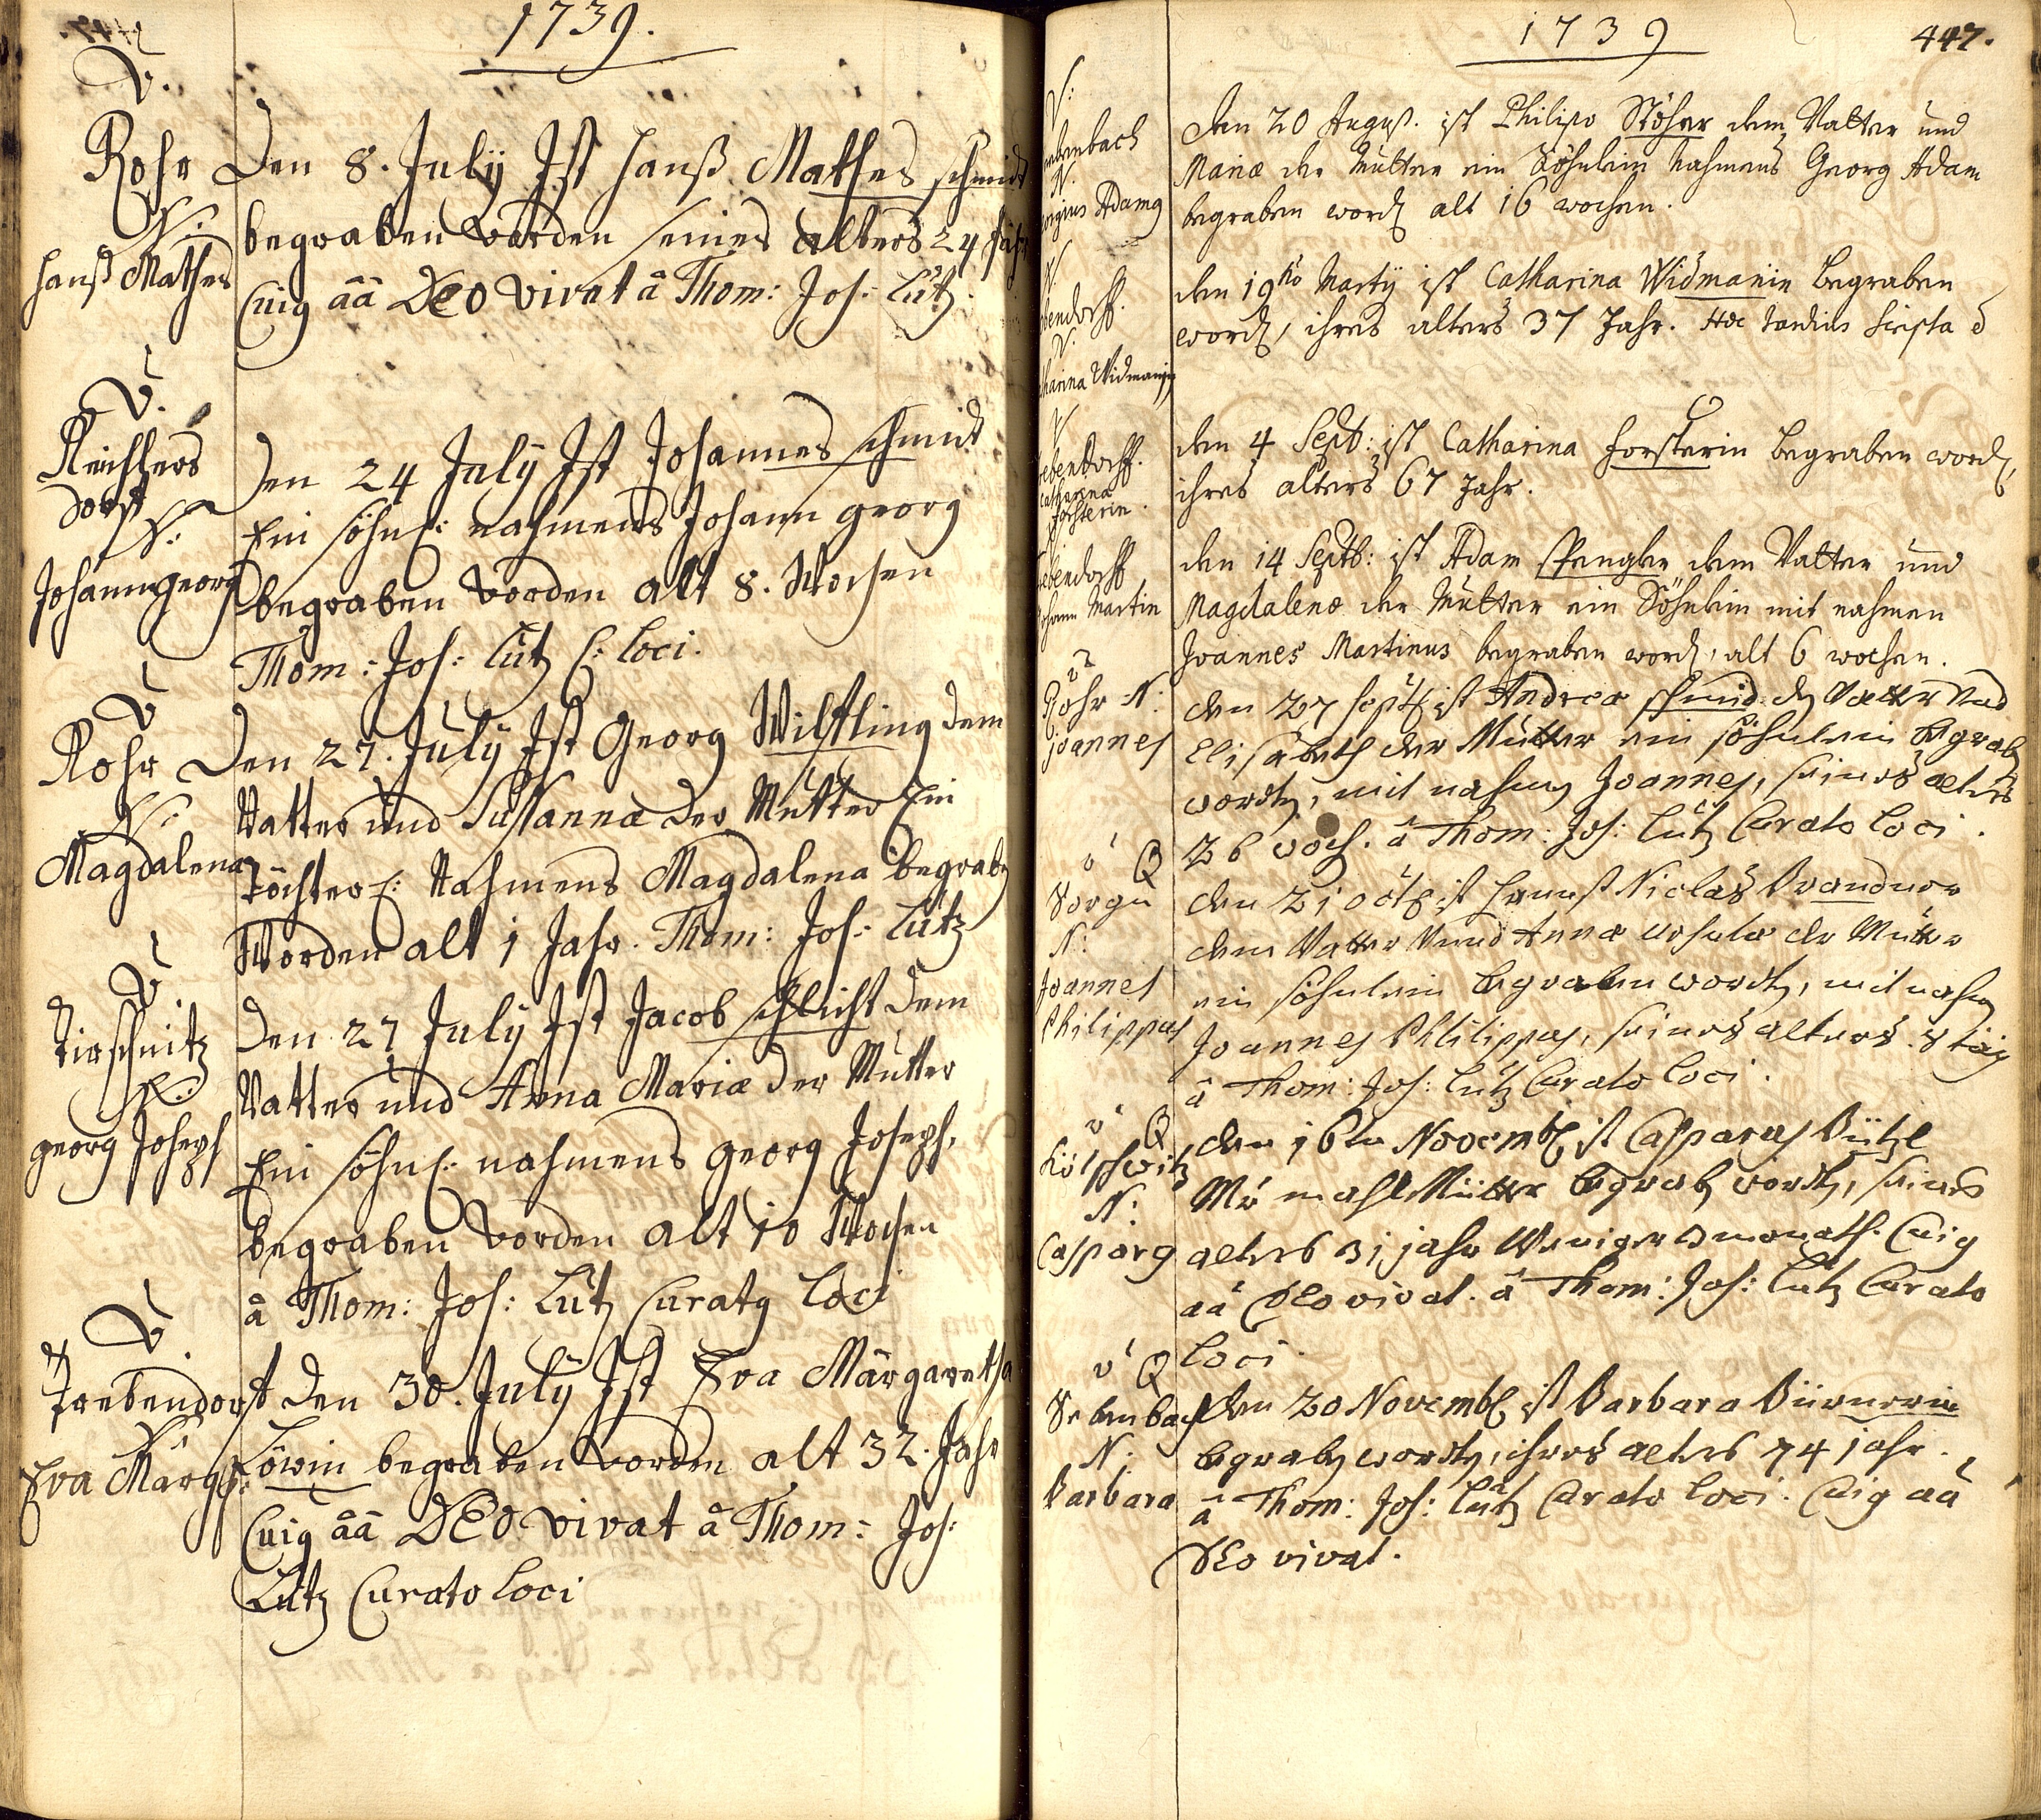 1739.
V.
Rohr
N:
Hanß Mathes
Den 8. July Ist Hanß Mathes schmidt
begraben worden seines alters 24 Jahr
Cuig ââ DEO vivat â Thom: Jos: Lutz.
V.
dorf
N:
Johann georg
Den 24 July Ist Johannes schmidt
Ein söhnl: nahmens Johann georg
begraben worden alt 8. Wochen
Thom: Jos: Lutz C: Loci.
V
Rohr
N:
Magdalena
Den 27. July Ist Georg Wilfling dem
Vatter und Sussannæ der Mutter Ein
Töchterl: Nahmens Magdalena begrabn
Worden alt 1 Jahr. Thom: Jos: Lutz
V
Tirschnitz
N:
georg Joseph
Den 27 July Ist Jacob schlicht dem
Vatter und Anna Mariæ der Mutter
Ein söhnl: nahmens georg Joseph,
begraben worden alt 10 Wochen
â Thom: Jos: Lutz Curatg Loci
V.
Trebendorf
N:
Eva Marg:
Den 30. July Ist Eva Margaretha
Löwin begraben worden alt 32. Jahr
Cuig ââ DEO vivat â Thom: Jos:
Lutz Curato Loci
1739
447.
den 20 August. ist Philipp Stöhrr dem Vatter und
Mariæ der Mutter ein Söhnlein nahmens Georg Adam
begraben word alt 16 wochen.
den 19 Martij ist Catharina Widmanin begraben
word, ihres alters 37 Jahr. Hæc tardius scripta
Catharina
Forsterin.
den 4 Sept: ist Catharina Forsterin begraben word,
ihres alters 67 Jahr.
Johann Martin
den 14 Septb: ist Adam Spengler dem Vatter und
Magdalenæ der Mutter ein Söhnlein mit nahmen
Joannes Martinus begraben word, alt 6 wochen.
Rohr N:
Joannes
den 27 Sept ist Andreæ schmid dem Vatter Und
Elisabeth der Mutter ein söhnlein begrabn
wordn, mit nahmen Joannes, seines alters
26 woch. â Thom: Jos: Lutz Curato Loci.
Sorgn
N:
Joannes
Philippus
den 21 Octb ist Hannß Niclas Brandner
dem Vatter Unnd Annæ Ursulæ der Mutter
ein söhnlein begraben wordn, mit nahmen
Joannes Philippus, seines alters 8 täg
â Thom: Jos: Lutz Curato Loci.
N:
Casparg
den 16ten Novembr ist Casparus
Mahl Müller begrabn wordn, seines
alters 31 jahr Weniger 3 monath. Cuig
ââ DEO vivat. â Thom: Jos: Lutz Curato
Loci.
N:
Barbara
den 20 Novembr ist Barbara
begrabn wordn, ihres alters 74 jahr.
â Thom: Jos: Lutz Curato Loci. Cuig ââ
DEO vivat.